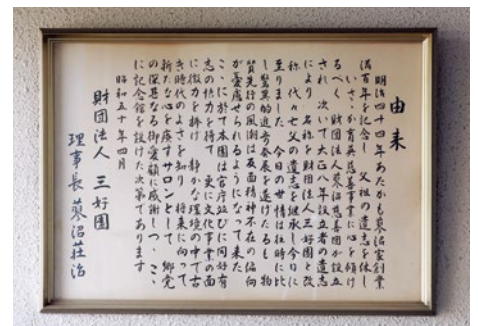 由来
明治四十四年あたかも蓼沼家創業
満百年を記念し 父祖の遺志を体し
いさゝか育英慈善事業に心を傾け
るべく 財団法人蓼沼慈善団が設立
され 次いで大正八年設立者の遺志
により 名称を財団法人三好園と改
称 代々亡父の遺志を継承し今日に
至りました 今日の世情は往時に比
し驚異的進歩発展を遂げたるも 物
質先行の風潮は反面精神不在の偏向
が憂慮せられるようになって来た
こゝに於て本園は官庁並びに同好有
志の協力を得て 更に文化事業の面
に微力を捧げ 静かな環境の中で古
き時代のよさを知り 将来に向って
新たな心を癒すサロンとして 郷党
の深甚なる御愛顧に感謝しつゝ こゝ
に記念館を設けた次第であります
昭和五十年四月
財団法人 三好園
理事長 蓼沼荘治